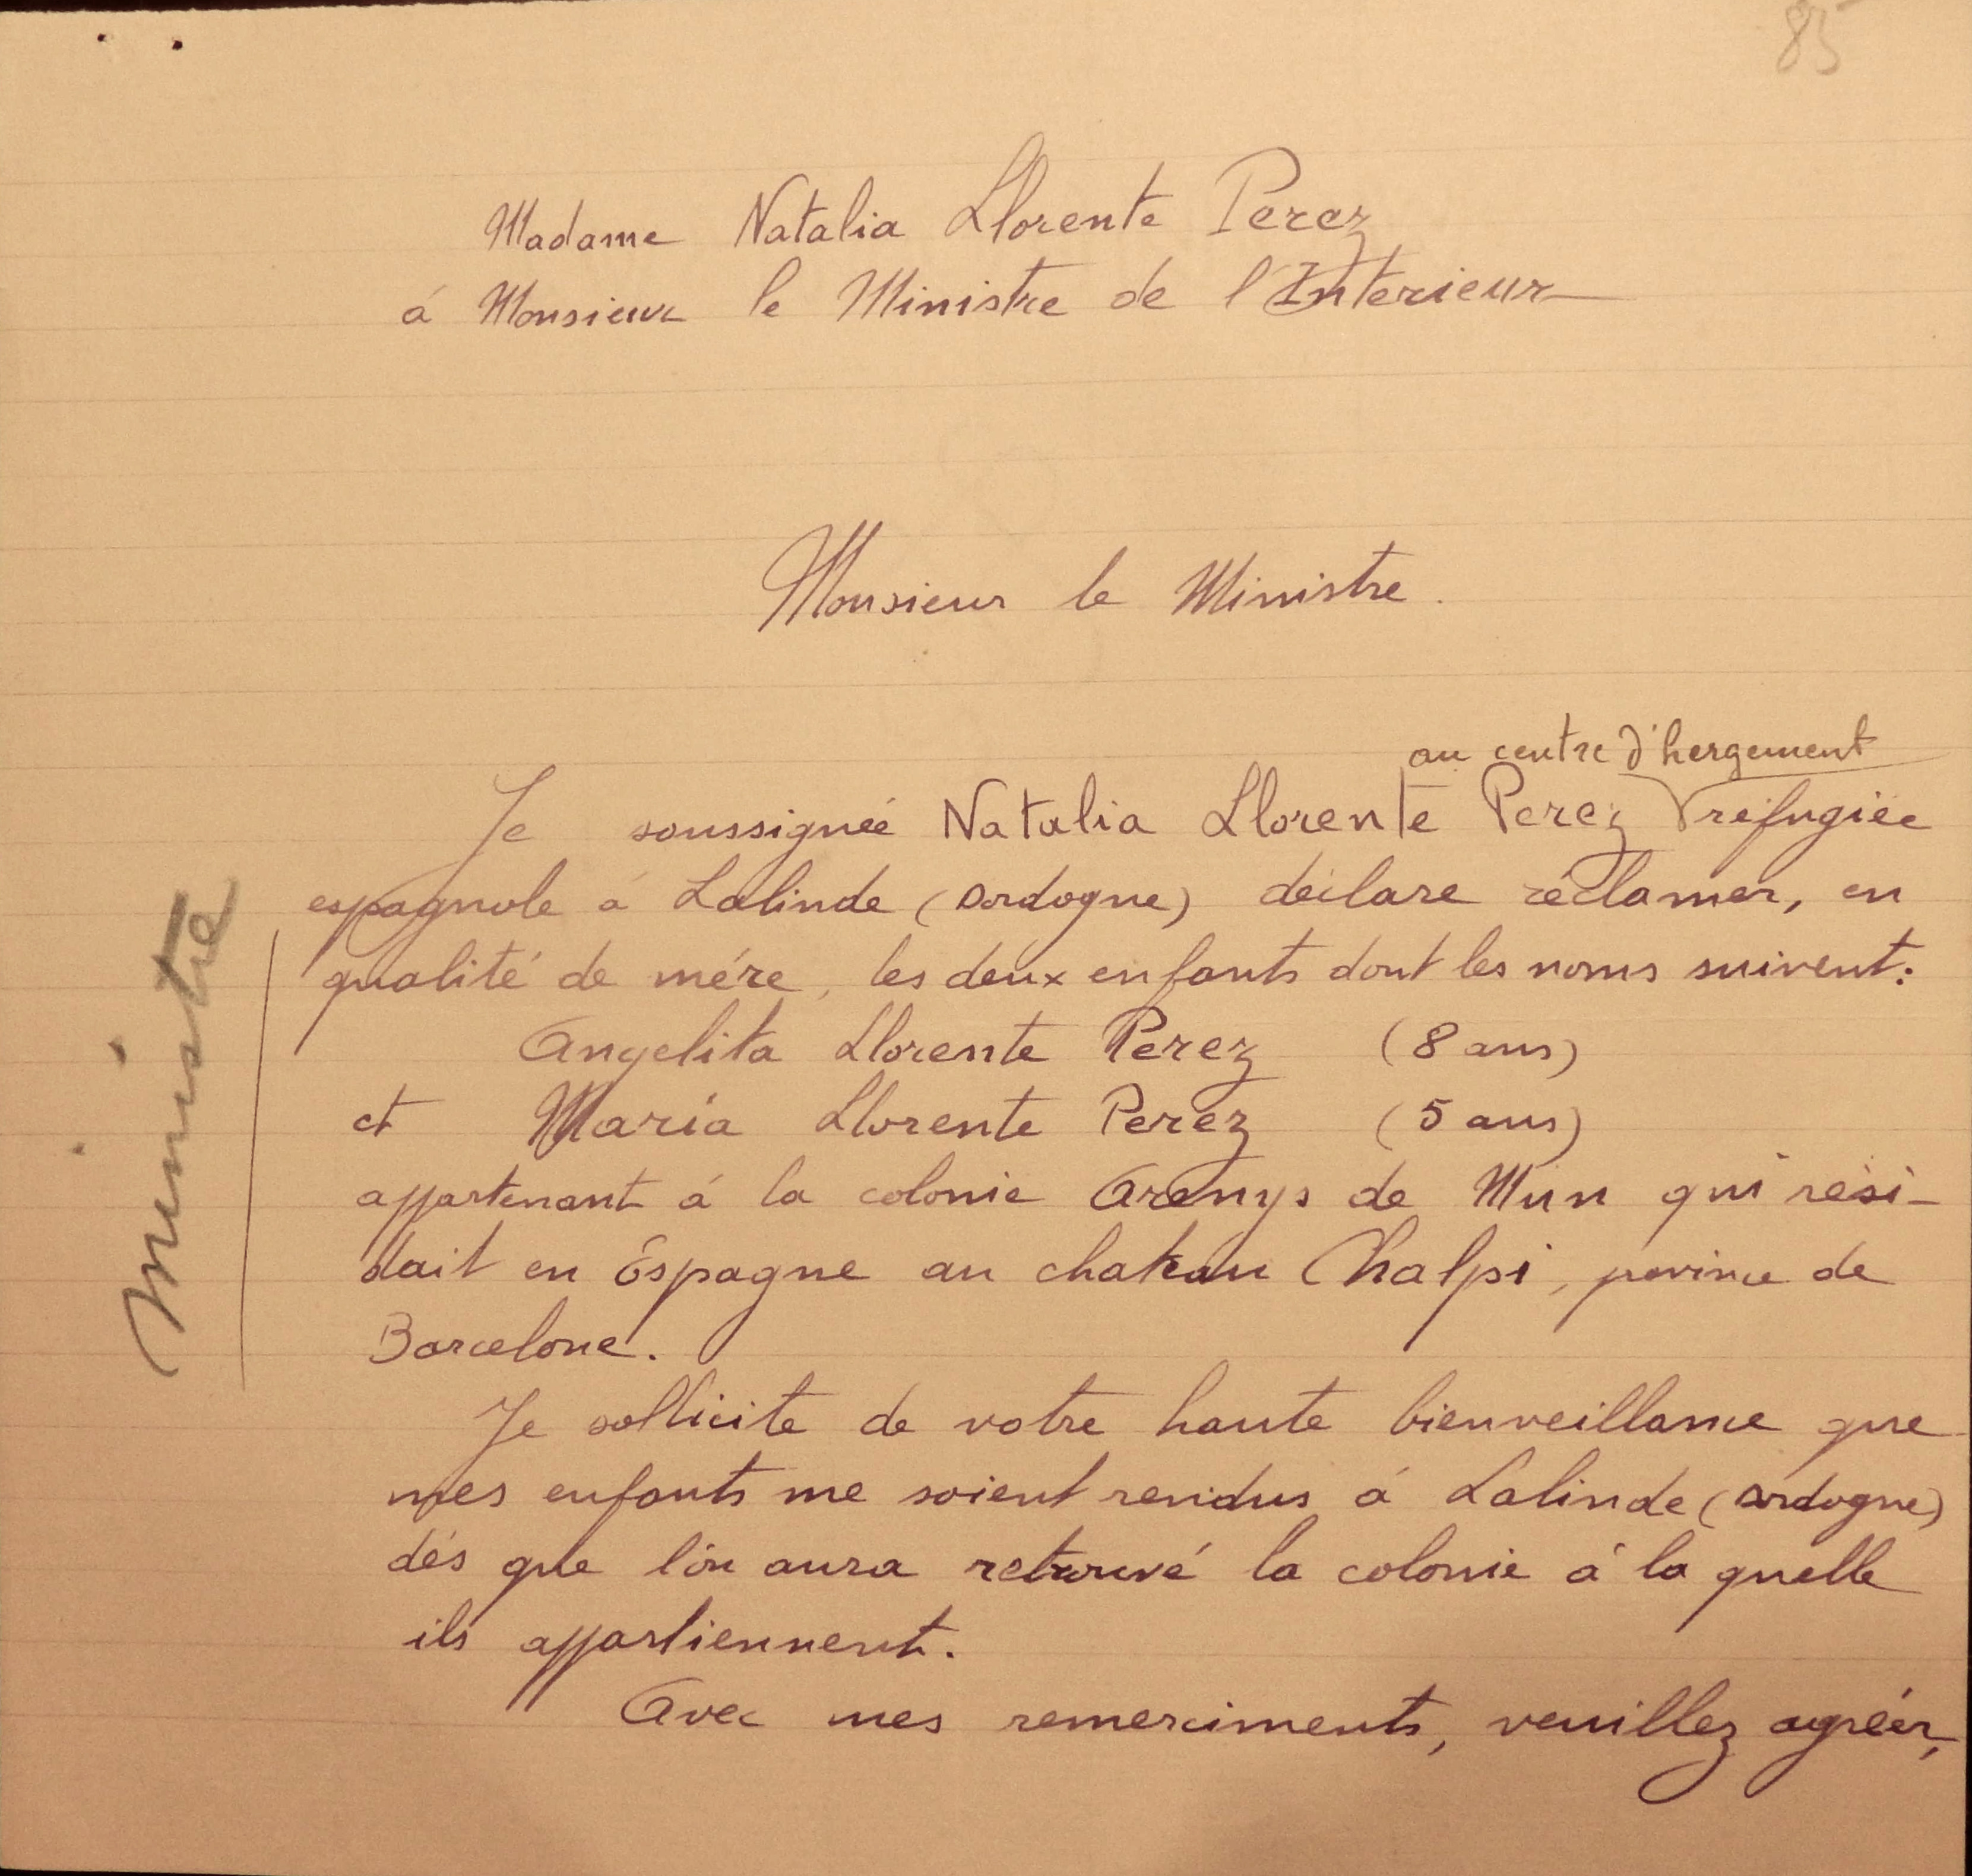 85
Madame Natalia Llorente Perez
á Monsieur le Ministre de l'Interieur
Monsieur le Ministre.
au centre d'hergement
Je soussignée Natalia Llorente Perez réfugiée
espagnole á Lalinde (Dordogne) déclare réclamer, en
qualité de mére, les deux enfants dont les noms suivent:
Angelita Llorente Perez (8 ans)
et Maria Llorente Perez (5 ans)
appartenant á la colonie Arenys de Mun qui rési-
dait en Espagne au chateau Chalpi, province de
Barcelone.
Je sollicite de votre haute bienveillance que
mes enfants me soient rendus á Lalinde (Dordogne)
dés que l'on aura retrouvé la colonie á la quelle
ils appartiennent.
Avec mes remerciments, veuillez agréer,
Ministre